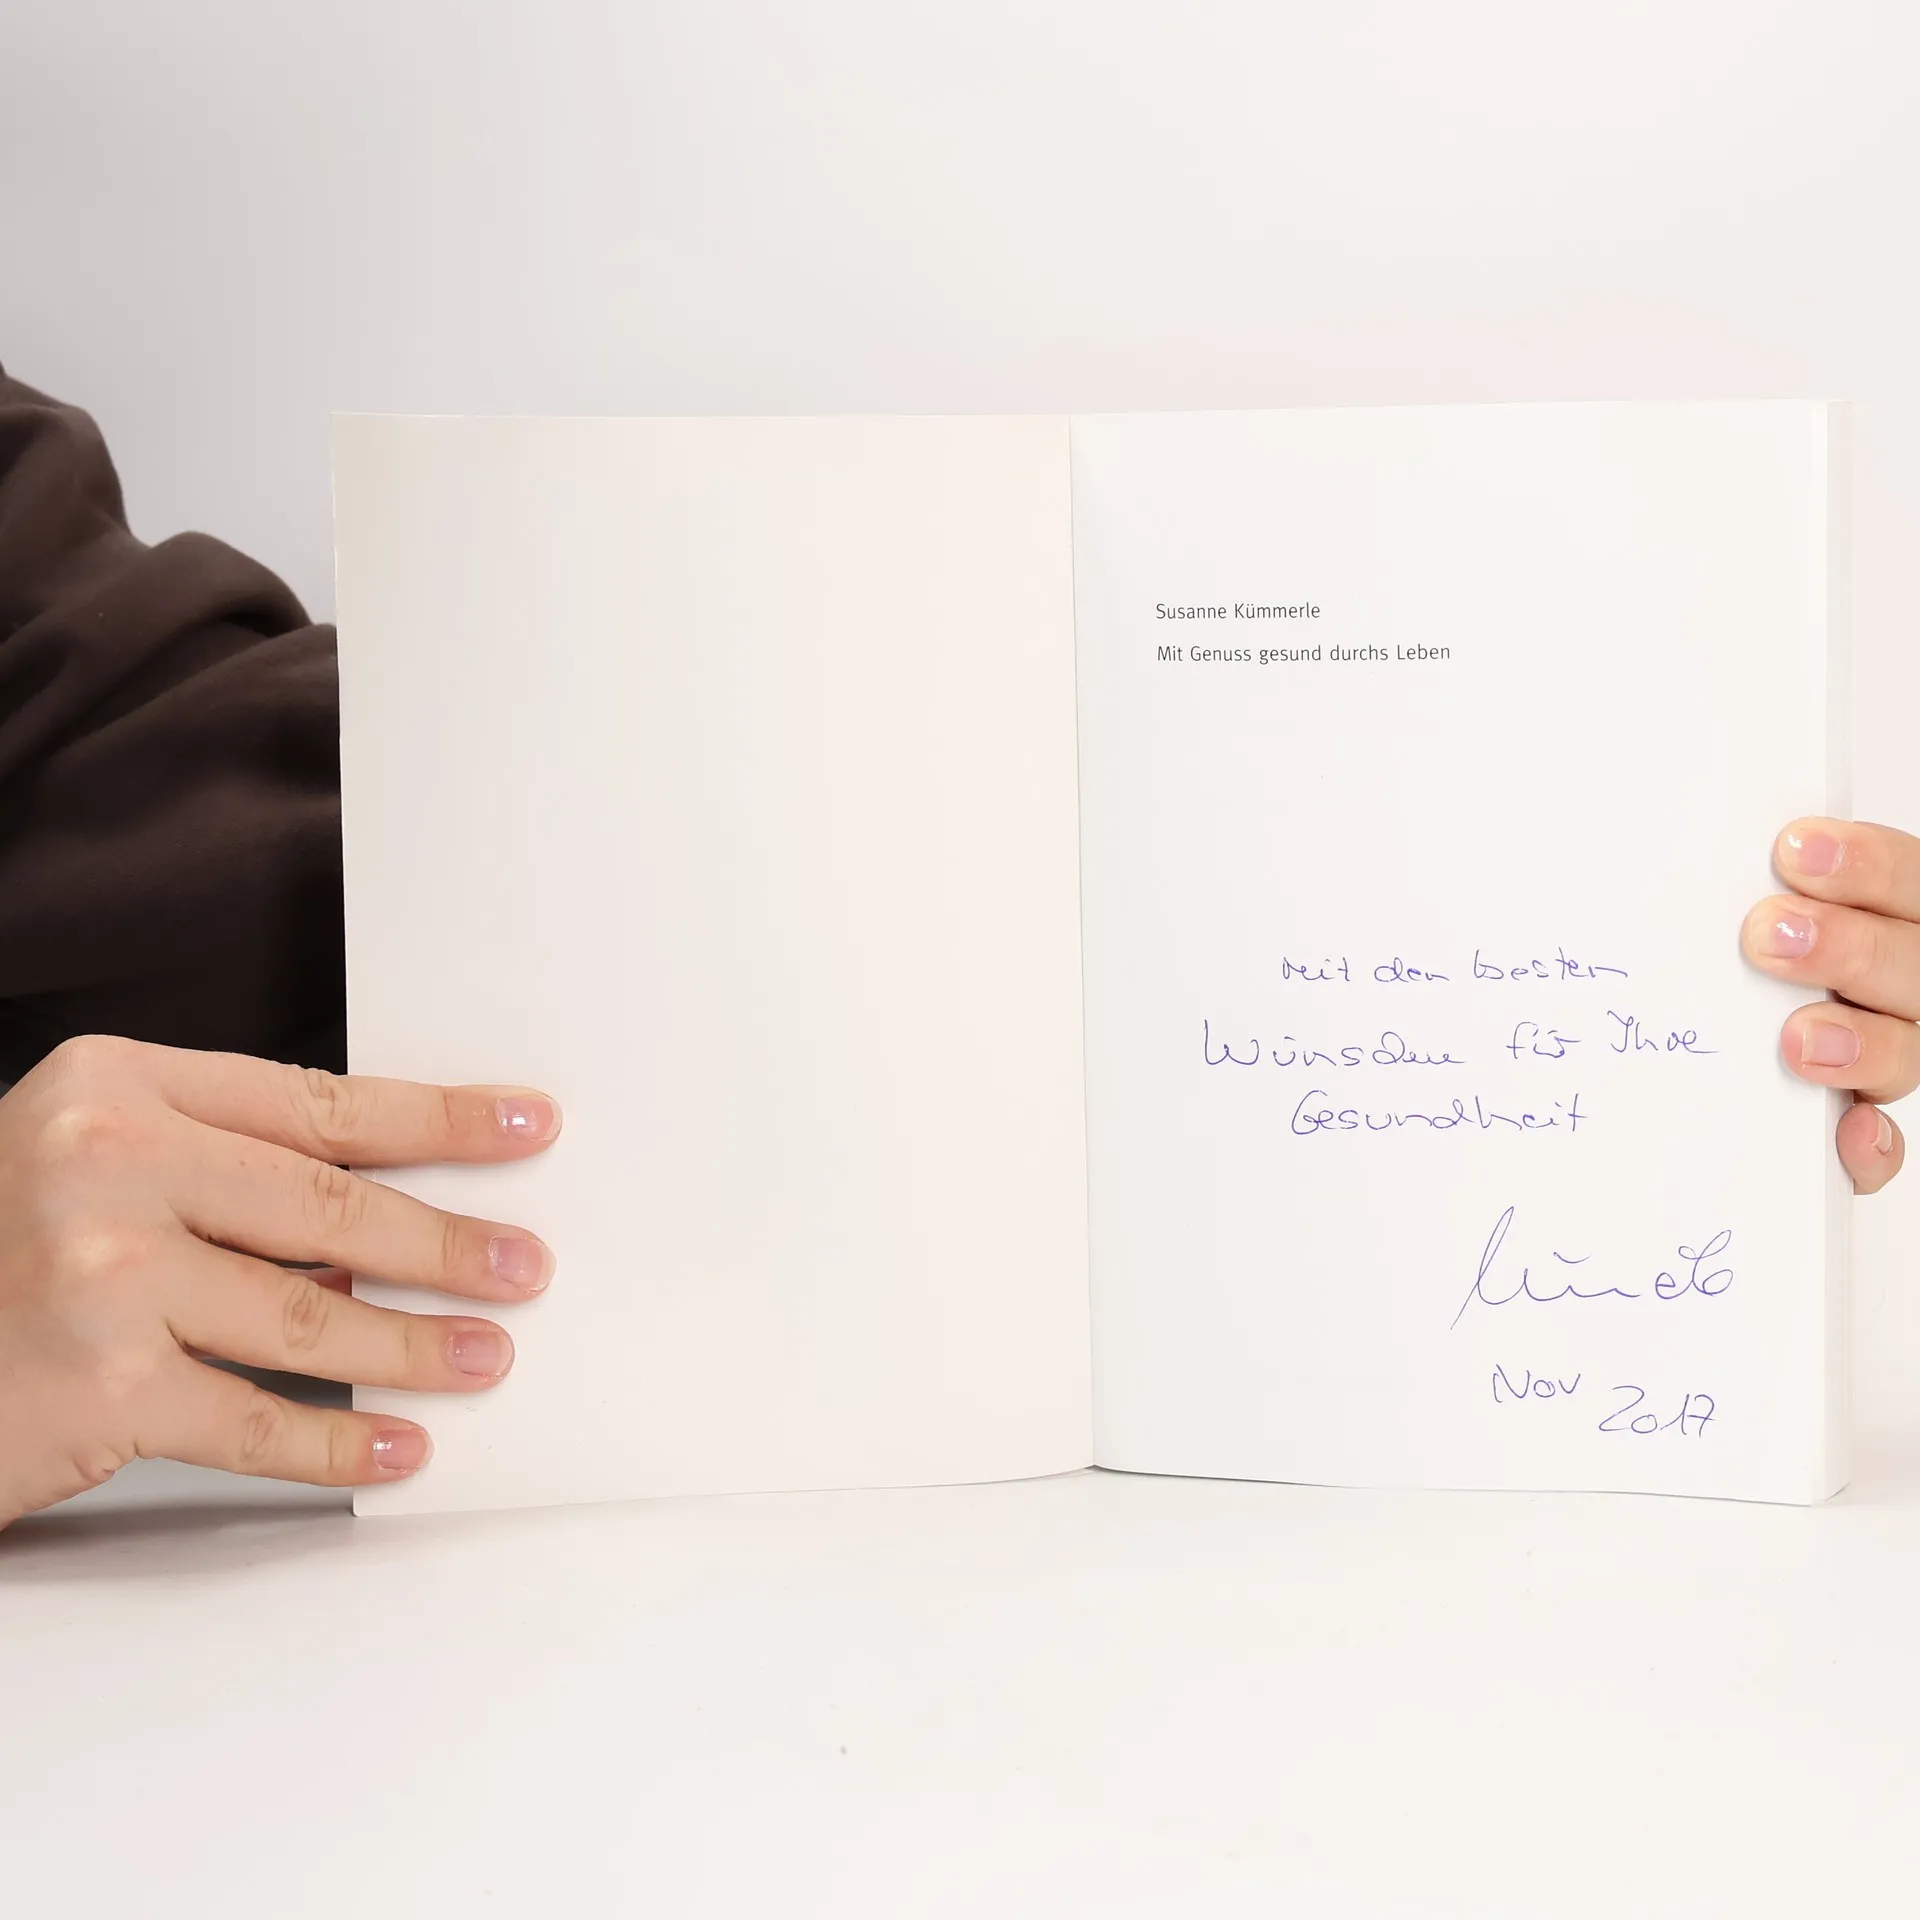 Susanne Kümmerle
Mit Genuss gesund durchs Leben
Mit den besten
Wünschen für Ihre
Gesundheit
Nov 2017